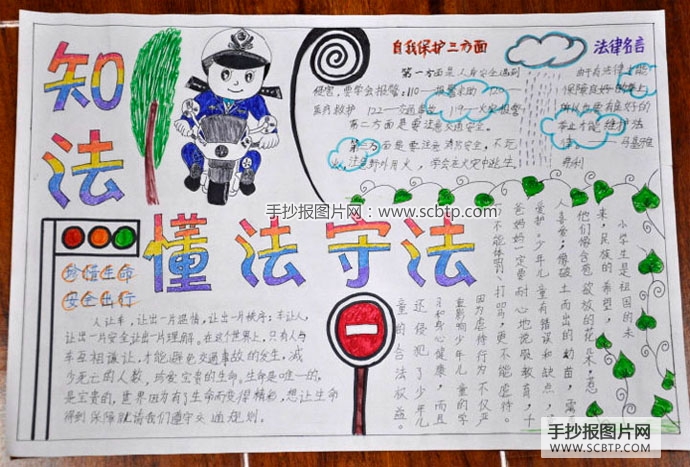 知法
懂法守法
自我保护三方面
第一方面是人身安全遇到
侵害，要学会报警：110—报警求助 120
医疗救护 122—交通事故 119—火灾报警
第二方面是要注意交通安全。
第三方面是要注意消防安全，不玩
火，注意野外用火，学会在火灾中逃生。
法律名言
由于有法律才能
保障良好的举止
所以也要有良好的
举止才能维护法
律 马基雅
弗利
手抄报图片网：www.scbtp.com
珍惜生命
安全出行
人让车，让出一片温情，让出一片秩序；车让人，
让出一片安全让出一片理解。在这个世界上，只有人与
车互相谦让，才能避免交通事故的发生，减
少死亡的人数，珍爱宝贵的生命。生命是唯一的，
是宝贵的，世界因为有了生命而变得精彩，想让生命
得到保障就请我们遵守交通规则。
小学生是祖国的未
来，民族的希望，
他们像含苞欲放的花朵，惹
人喜爱；像破土而出的幼苗，需
爱护。少年儿童有错误和缺点，
爸妈妈一定要耐心地说服教育，千
万不能体罚、打骂，更不能虐待。
因为虐待行为不仅严
重影响少年儿童的学
习和身心健康，而且
还侵犯了少年儿
童的合法权益。
手抄报图片网
SCBTP.COM